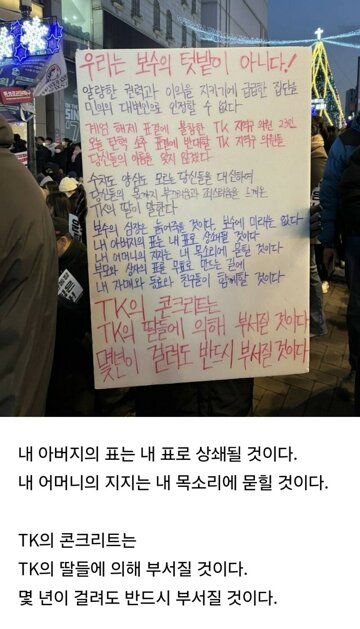 우리는 보수의 텃밭이 아니다!
알량한 권력과 이익을 지키기에 급급한 집단을
민의의 대변인으로 인정할 수 없다
계엄 해제 표결에 불참한 TK 지역구 의원 23인
오늘 탄핵 소추 표결에 반대할 TK 지역구 의원들
당신들의 이름을 잊지 않겠다
수치도 양심도 모르는 당신들을 대신하여
당신들의 몫까지 부끄러움과 죄스러움을 느끼는
TK의 딸이 말한다
보수의 심장은 늙어죽을 것이다, 보수에 미래는 없다
내 아버지의 표는 내 표로 상쇄될 것이다
내 어머니의 지지는 내 목소리에 묻힐 것이다
부모와 상사의 표를 무효로 만드는 길에
내 자매와 동료와 친구들이 함께할 것이다
TK의 콘크리트는
TK의 딸들에 의해 부서질 것이다
몇년이 걸려도 반드시 부서질 것이다
내 아버지의 표는 내 표로 상쇄될 것이다.
내 어머니의 지지는 내 목소리에 묻힐 것이다.
TK의 콘크리트는
TK의 딸들에 의해 부서질 것이다.
몇 년이 걸려도 반드시 부서질 것이다.